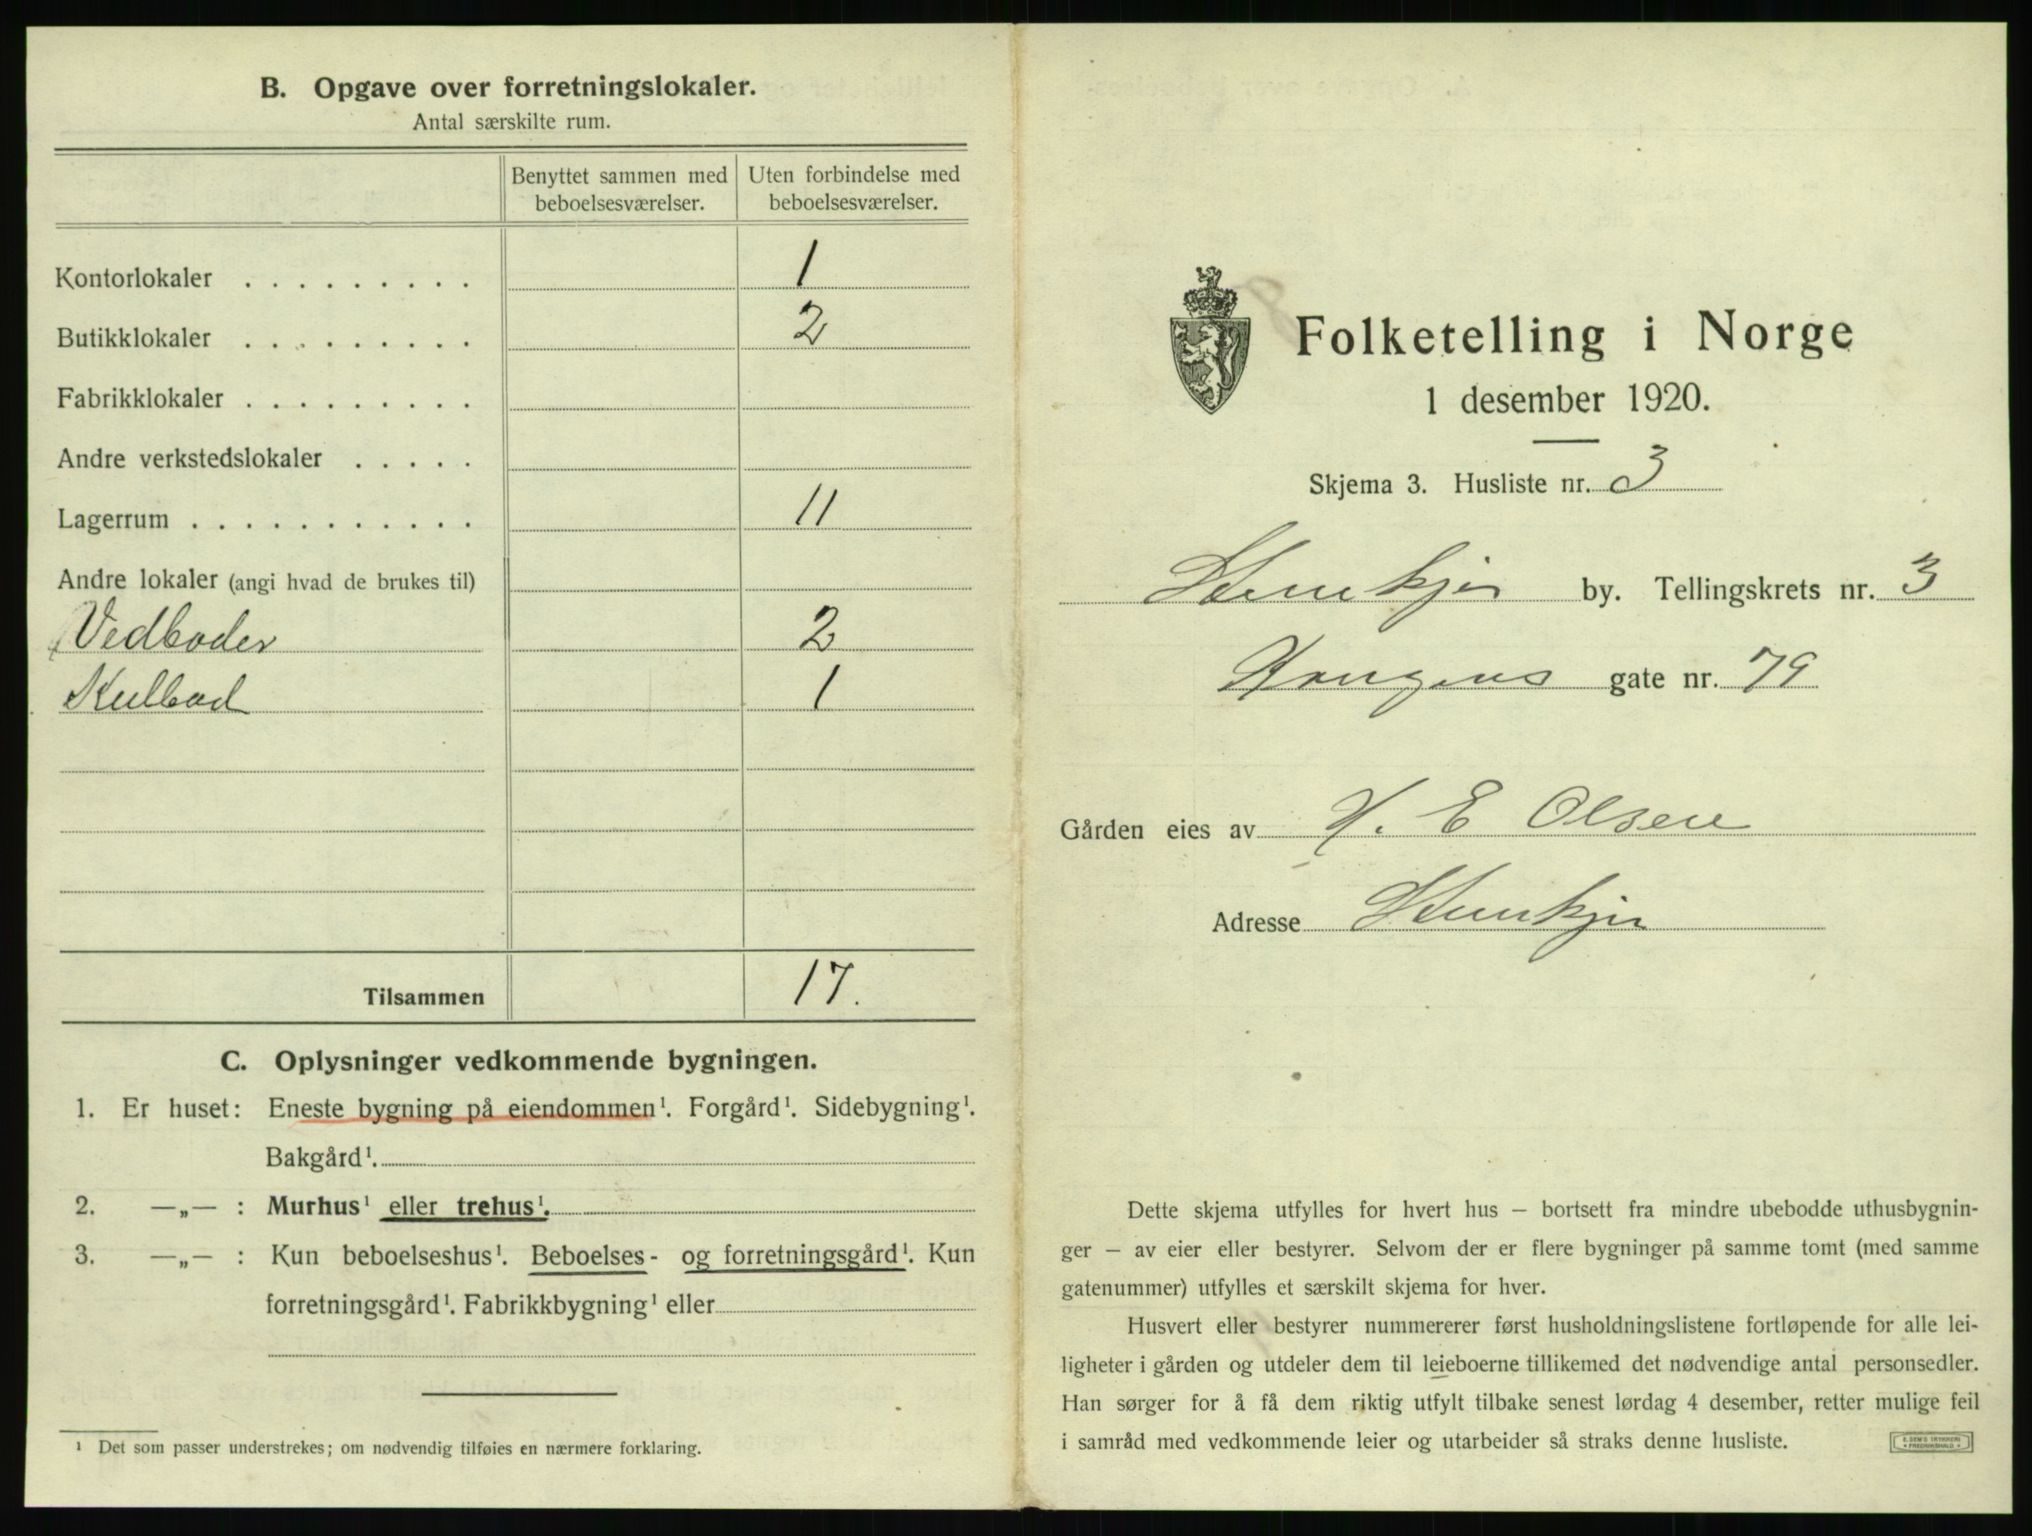 B. Opgave over forretningslokaler.
Antal særskilte rum.
Benyttet sammen med beboelsesværelser.
Uten forbindelse med beboelsesværelser.
Kontorlokaler . . . . . . . . . 1
Butikklokaler . . . . . . . . . 2
Fabrikklokaler . . . . . . . . .
Andre verkstedslokaler . . . . .
Lagerrum . . . . . . . . . . . 11
Andre lokaler (angi hvad de brukes til)
Vedboder 2
Kulbod 1
Tilsammen 17.
C. Oplysninger vedkommende bygningen.
1. Er huset: Eneste bygning på eiendommen¹. Forgård¹. Sidebygning¹.
Bakgård¹.
2. —„— : Murhus¹ eller trehus¹.
3. —„— : Kun beboelseshus¹. Beboelses- og forretningsgård¹. Kun
forretningsgård¹. Fabrikkbygning¹ eller
¹ Det som passer understrekes; om nødvendig tilføies en nærmere forklaring.
Folketelling i Norge
1 desember 1920.
Skjema 3. Husliste nr. 3
Stenkjer by. Tellingskrets nr. 3
Kongens gate nr. 79
Gården eies av H. E Olsen
Adresse Stenkjer
Dette skjema utfylles for hvert hus – bortsett fra mindre ubebodde uthusbygnin-
ger – av eier eller bestyrer. Selvom der er flere bygninger på samme tomt (med samme
gatenummer) utfylles et særskilt skjema for hver.
Husvert eller bestyrer nummererer først husholdningslistene fortløpende for alle lei-
ligheter i gården og utdeler dem til leieboerne tillikemed det nødvendige antal personsedler.
Han sørger for å få dem riktig utfylt tilbake senest lørdag 4 desember, retter mulige feil
i samråd med vedkommende leier og utarbeider så straks denne husliste.